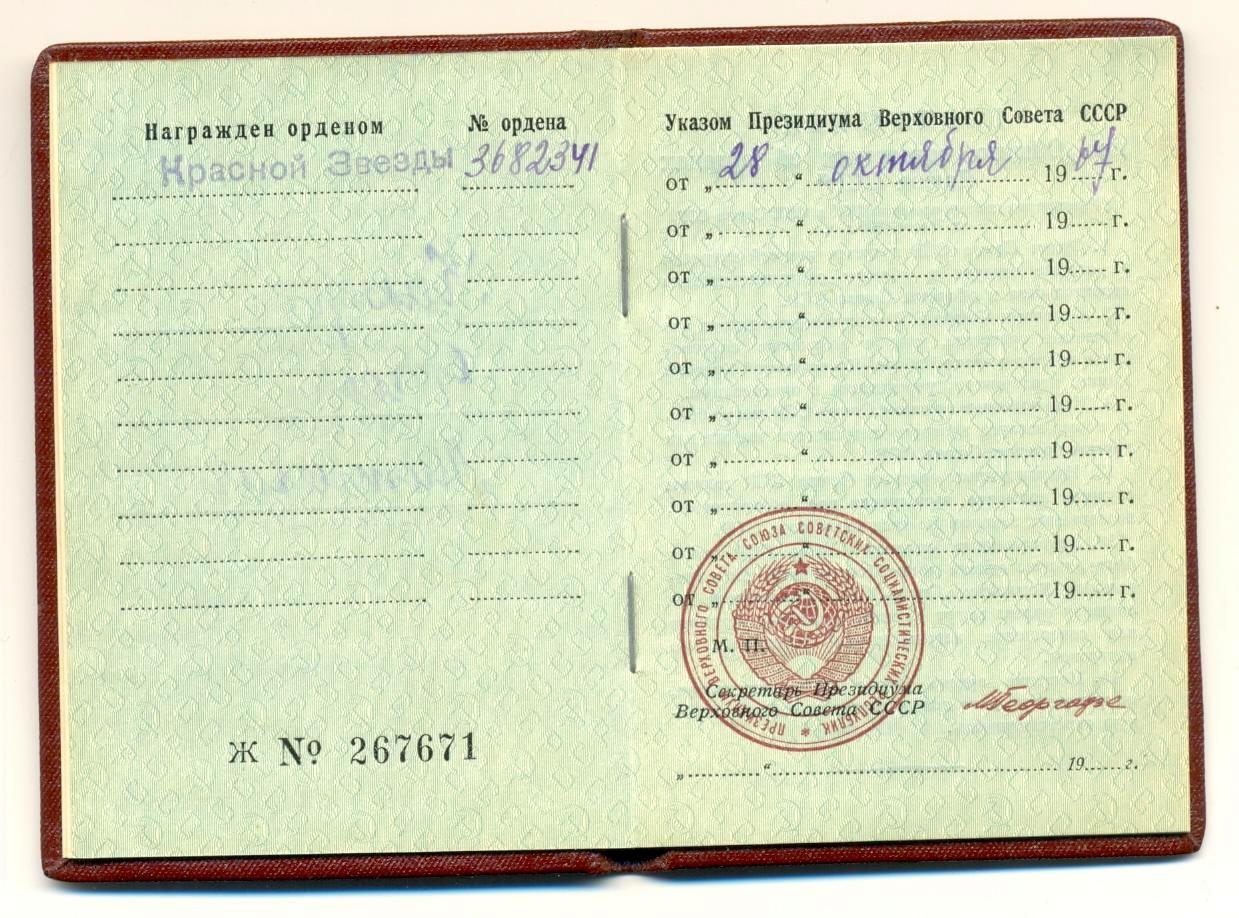 Награжден орденом
№ ордена
Красной Звезды 3682341
Ж № 267671
Указом Президиума Верховного Совета СССР
от „28“ октября 1967 г.
от „ “ 19 г.
от „ “ 19 г.
от „ “ 19 г.
от „ “ 19 г.
от „ “ 19 г.
от „ “ 19 г.
от „ “ 19 г.
от „ “ 19 г.
от „ “ 19 г.
ПРЕЗИДИУМ ВЕРХОВНОГО СОВЕТА СОЮЗА СОВЕТСКИХ СОЦИАЛИСТИЧЕСКИХ РЕСПУБЛИК *
М. П.
Секретарь Президиума
Верховного Совета СССР
МГеоргадзе
„ “ 19 г.